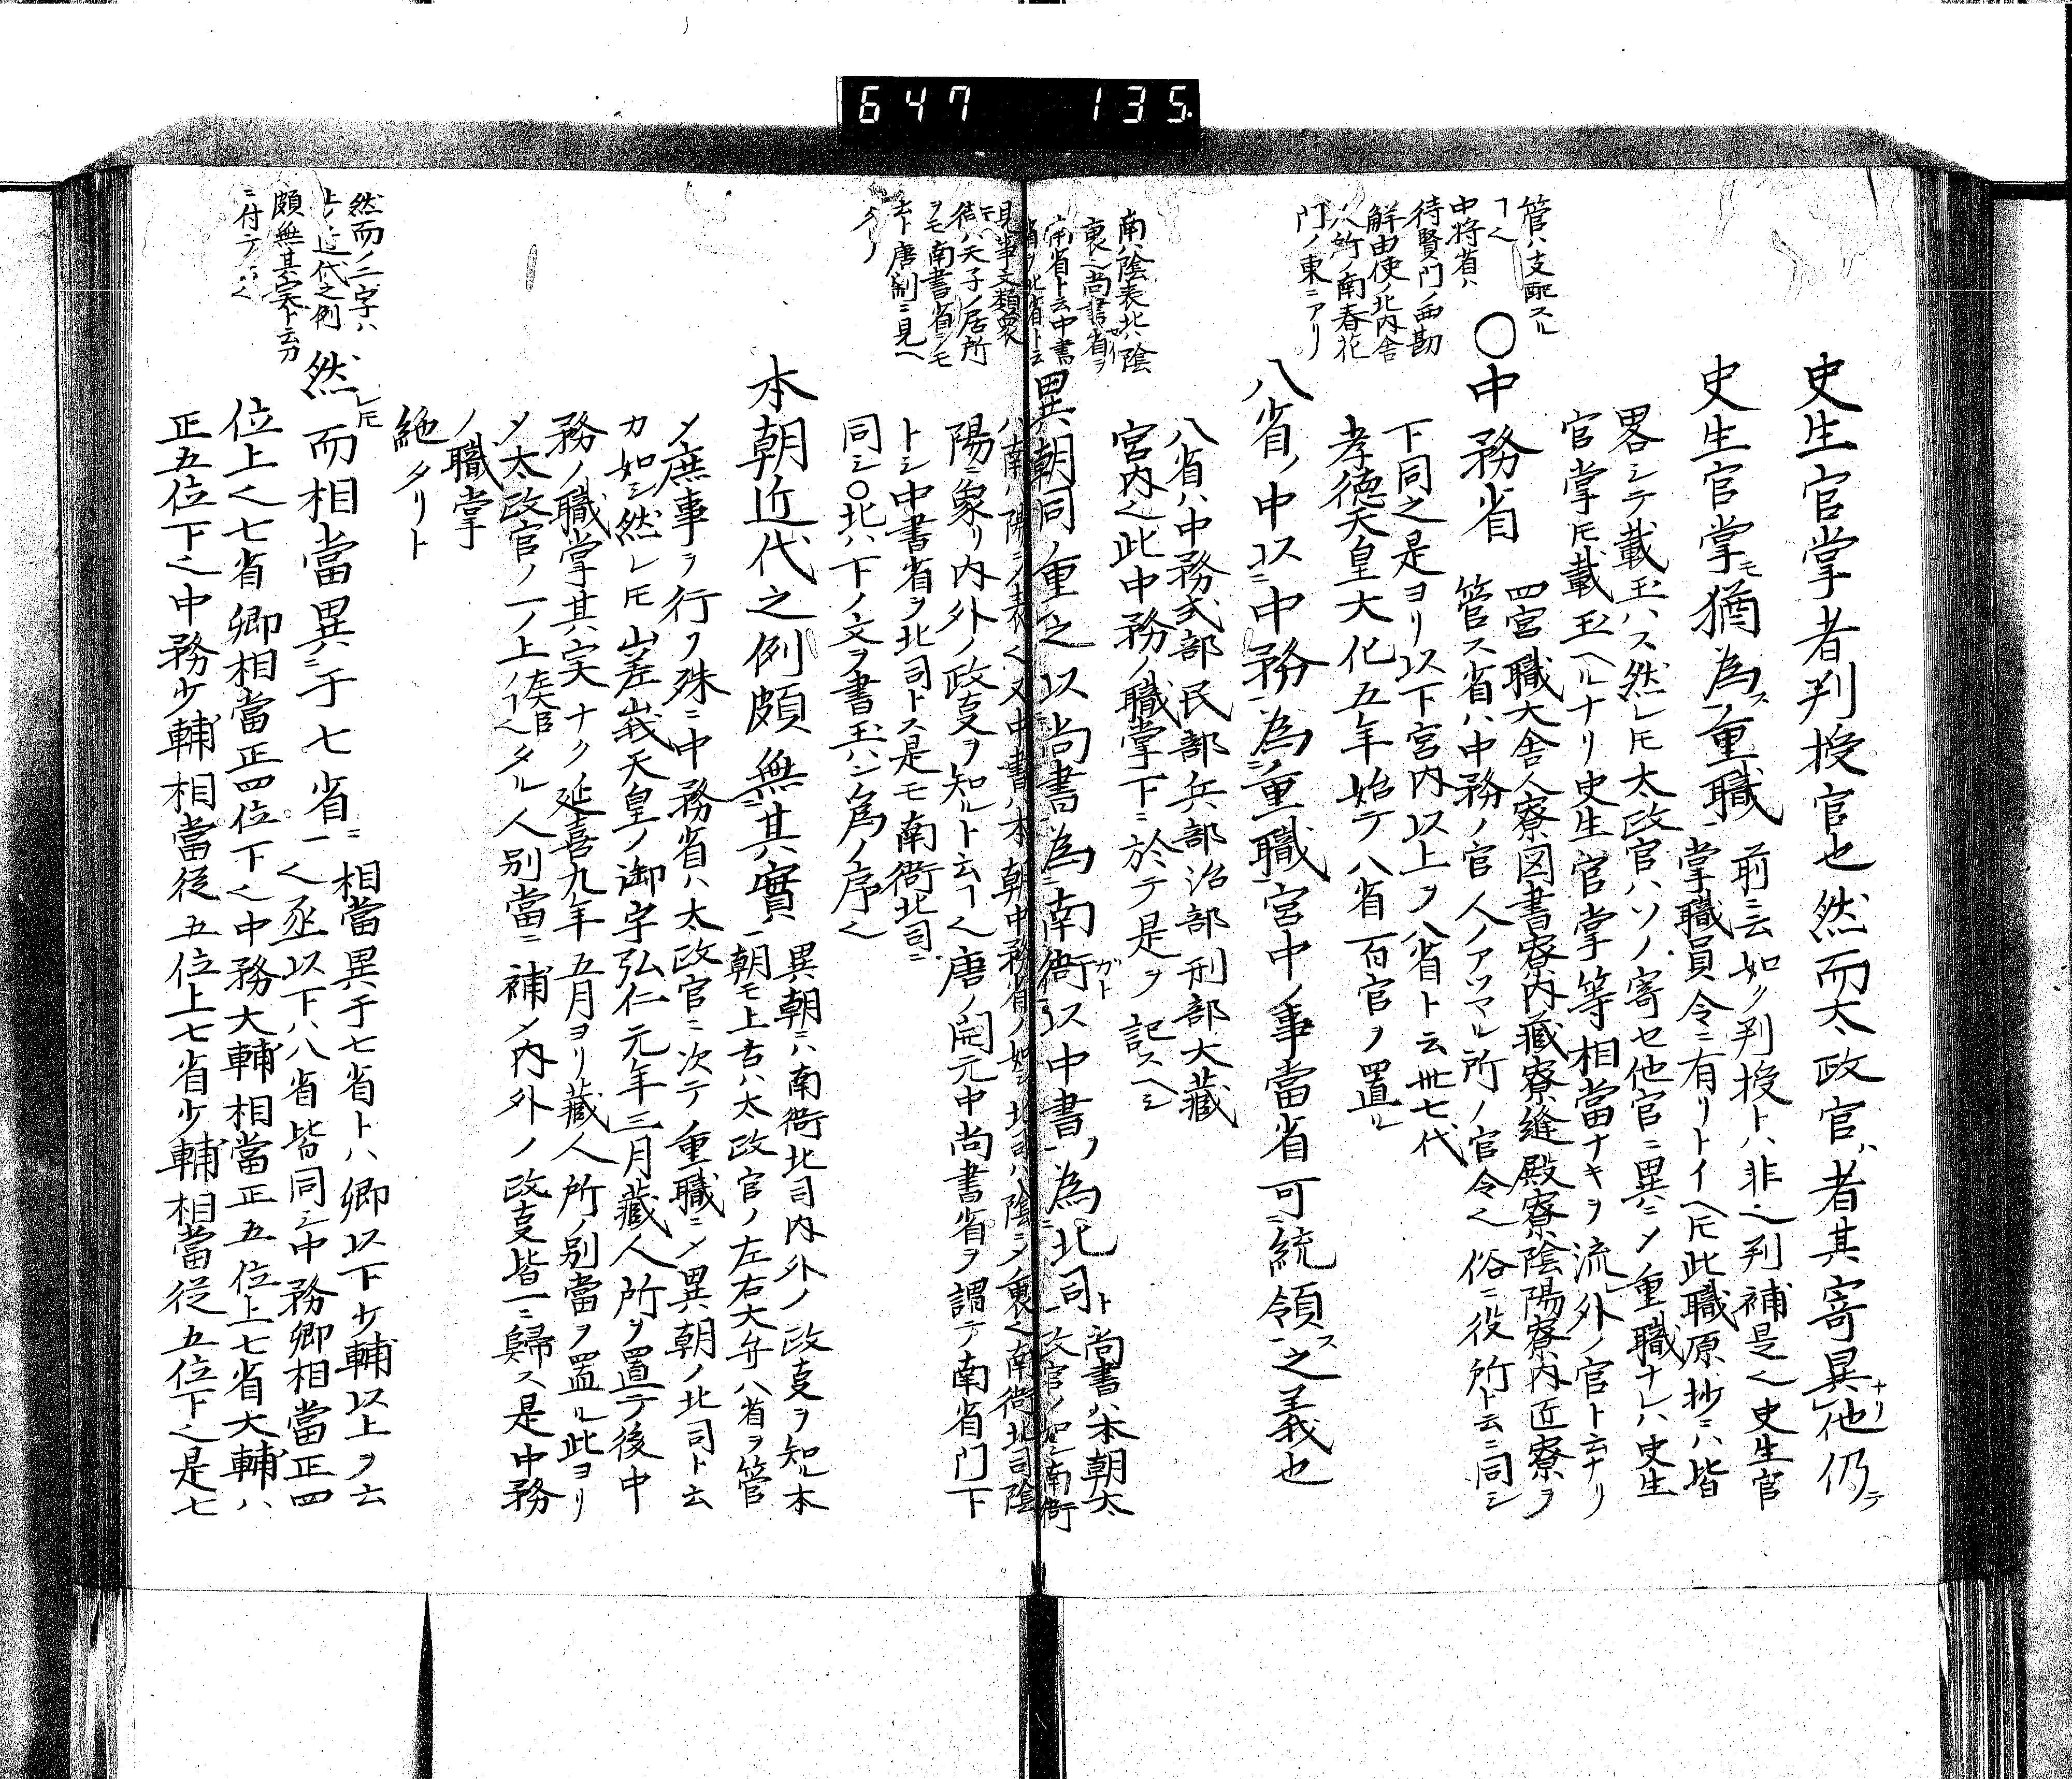 647 135
史生官掌者判授官也然而太政官ハ者其寄異他ナリ仍テ
史生官掌モ猶為重職ス 前ニ云如ク判授トハ非ス判補是也史生官
掌職員令ニ有リトイヘ𪜈此職原抄ニハ皆
畧シテ載玉ハス然レ𪜈太政官ハソノ寄セ他官ニ異ニメ重職ナレハ史生
官掌𪜈載玉ヘルナリ史生官掌等相當ナキヲ流外ノ官ト云ナリ
管ハ支配スル
ヿ也
中将省ハ
待賢門ノ西勘
解由使ノ北内舎
人所ノ南春花
門ノ東ニアリ
〇中務省 四宮職大舎人寮図書寮内藏寮縫殿寮陰陽寮内匠寮ヲ
管ス省ハ中務ノ官人ノアツマル所ノ官令也俗ニ役所ト云ニ同シ
下同之是ヨリ以下宮内以上ヲ八省ト云卅七代
孝德天皇大化五年始テ八省百官ノ置ル
八省ノ中ニ以中務為重職宮中ノ事當省可統領ス之義也
八省ハ中務式部民部兵部治部刑部大藏
宮内也此中務ノ職掌下ニ於テ是ヲ記スヘシ
南ハ陰表北ハ陰
裏也尚書省ヲ
南省ト云中書
省ヲ北省ト云
異朝同ノ重之以尚書為南衙以中書為北司ト 尚書ハ本朝太
政官ノ如シ南衙
ハ南ハ陽ニメ表也又中書ハ本朝中務省ノ如シ北司ハ陰ニメ裏也南衙北司陰
見事文類聚
衙ハ天子ノ居所
ヲモ南書省ニモ
云ト唐制ニ見ヘ
タリ
陽ニ象リ内外ノ政叓ヲ知ルト云ヿ也唐ノ開元中尚書省ヲ謂テ南省門下
トシ中書省ヲ北司トス是モ南衙北司ニ
同シ〇北ハ下ノ文ヲ書玉ハン為ノ序也
本朝近代之例頗無其實 異朝ニハ南衙北司内外ノ政叓ヲ知ル本
朝モ上古ハ太政官ノ左右大弁八省ヲ管
メ庶事ヲ行フ殊ニ中務省ハ太政官ニ次テノ重職ニメ異朝ノ北司ト云
カ如シ然レ𪜈嵯峩天皇ノ御宇弘仁元年三月藏人所ヲ置テ後中
務ノ職掌其実ナク延喜九年五月ヨリ藏人所ノ別當ヲ置ル此ヨリ
メ太政官ノ一ノ上左大臣ノヿ也タル人別當ニ補メ内外ノ政叓皆一ニ歸ス是中務
ノ職掌
絶タリト
然而ノ二字ハ
上ノ近代之例
頗無其実ト云刀
ニ付テ云也
然レ𪜈而相當異于七省ニ 相當異于七省トハ卿以下少輔以上ヲ云
也丞以下ハ八省皆同シ中務卿相當正四
位上也七省卿相當正四位下也中務大輔相當正五位上七省大輔ハ
正五位下也中務少輔相當從五位上七省少輔相當從五位下也是七